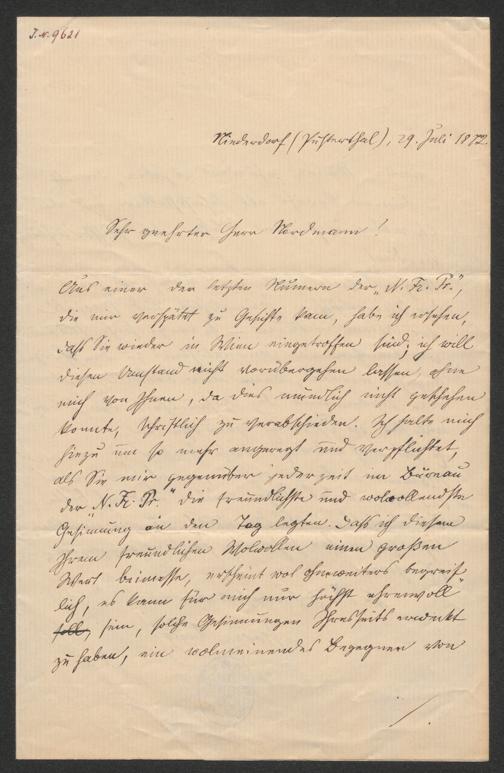 J.N. 9621
Niederdorf (Pusterthal), 29. Juli 1872.
Sehr geehrter Herr Nordmann!
Aus einer der letzten Numern der „N. Fr. Pr.",
die mir verspätet zu Gesichte kam, habe ich ersehen,
daß Sie wieder in Wien eingetroffen sind; ich will
diesen Umstand nicht vorübergehen lassen, ohne
mich von Ihnen, da dies mündlich nicht geschehen
konnte, schriftlich zu verabschieden. Ich halte mich
hiezu um so mehr angeregt und verpflichtet,
als Sie mir gegenüber jederzeit im Büreau
der „N. Fr. Pr." die freundlichste und wolwollendste
Gesinnung an den Tag legten. Daß ich diesem
Ihrem freundlichen Wolwollen einen großen
Wert beimesse, erscheint wol ohneweiters begreif-
lich, es kann für mich nur höchst ehrenvoll
soll, sein, solche Gesinnungen Ihrerseits erweckt
zu haben, ein wolmeinendes Begegnen von
./.